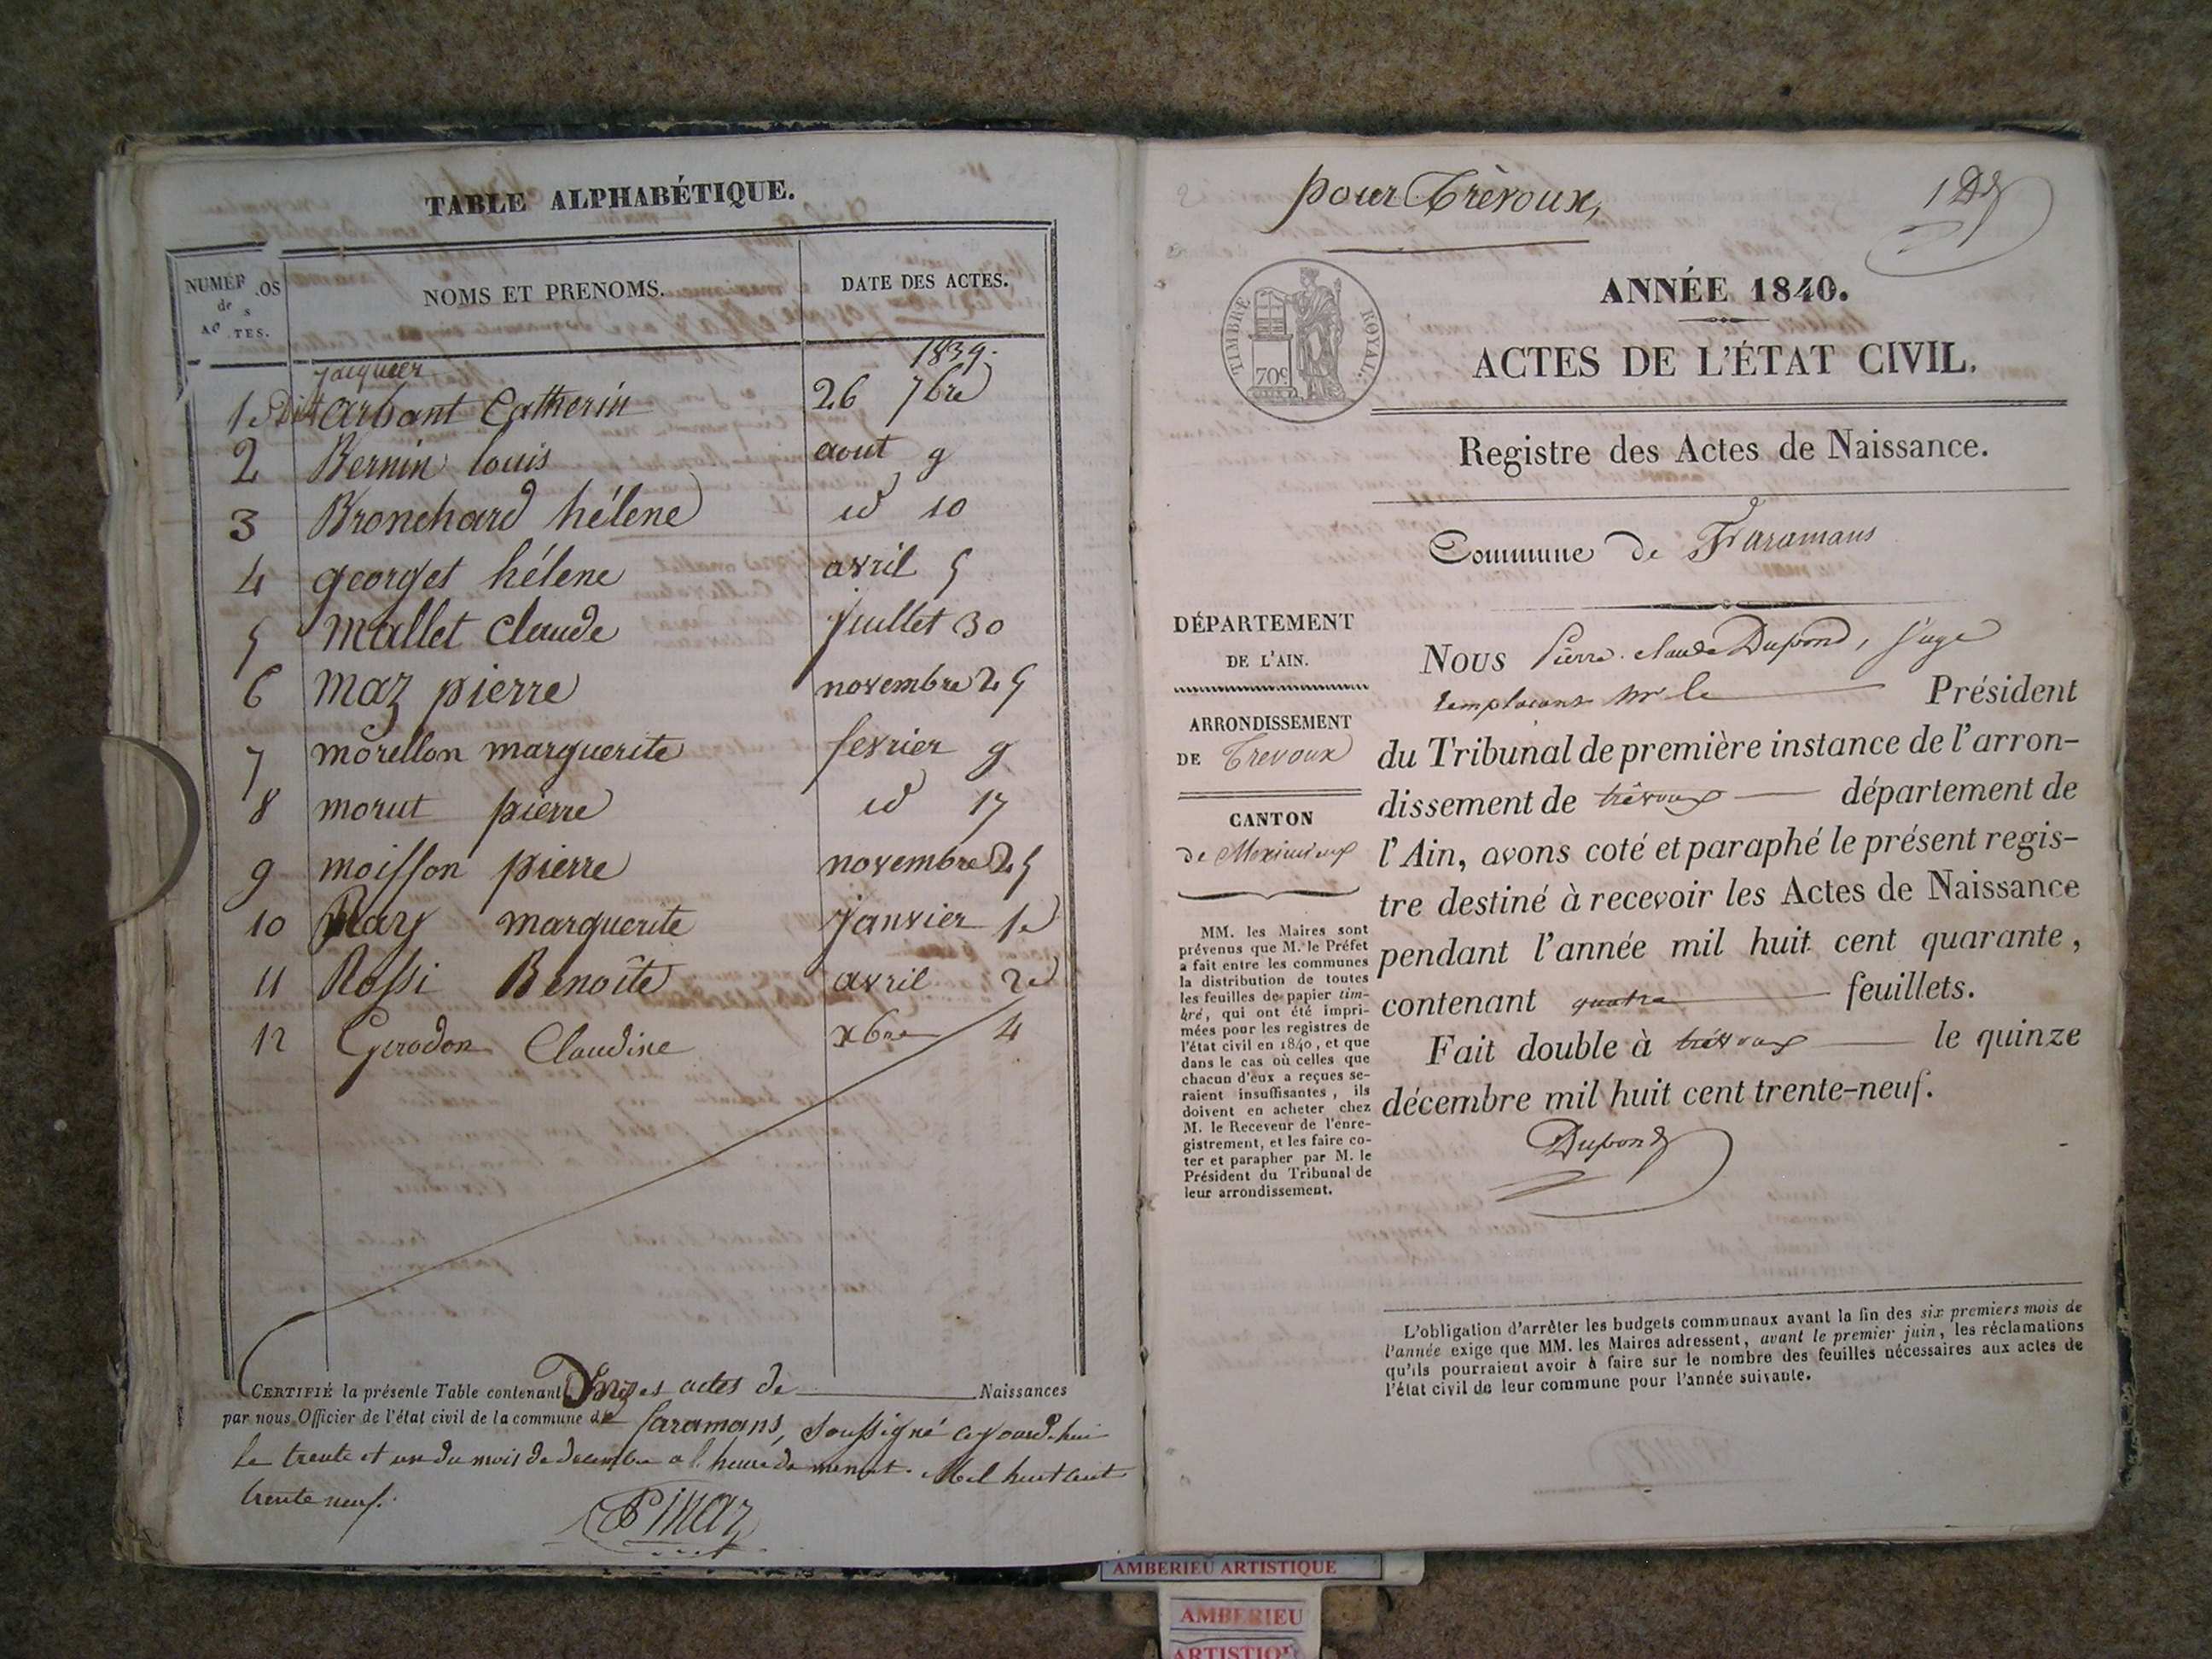 TABLE ALPHABÉTIQUE.
NUMÉROS des ACTES.
NOMS ET PRENOMS.
DATE DES ACTES.
1839.
Jacquier
1e dit arbant Catherin 26 7bre
2 Bernin louis aout 9
3 Bronchard hélene id 10
4 georget hélene avril 5
5 Mallet Claude juillet 30
6 maz pierre novembre 25
7 morellon marguerite fevrier 9
8 morut pierre id 17
9 moisson pierre novembre 25
10 marguerite janvier 1e
11 Rossi Benoîte avril 2e
12 Gerodon Claudine xbre 4
CERTIFIÉ la présente Table contenant Douzes actes de Naissances
par nous Officier de l'état civil de la commune de faramans, soussigné ce jourd'hui
Le trente et un du mois de decembre a l'heure de minuit. Mil huit cent
trente neuf.
pour Trèvoux,
ANNÉE 1840.
TIMBRE ROYAL.
70c
ACTES DE L'ÉTAT CIVIL.
Registre des Actes de Naissance.
Commune de Faramans
DÉPARTEMENT
DE L'AIN.
ARRONDISSEMENT
DE Trevoux
CANTON
de Meximieux
MM. les Maires sont
prévenus que M. le Préfet
a fait entre les communes
la distribution de toutes
les feuilles de papier tim-
bré, qui ont été impri-
mées pour les registres de
l'état civil en 1840, et que
dans le cas où celles que
chacun d'eux a reçues se-
raient insuffisantes, ils
doivent en acheter chez
M. le Receveur de l'enre-
gistrement, et les faire co-
ter et parapher par M. le
Président du Tribunal de
leur arrondissement.
Nous Pierre Claude Dupond, juge
remplaçant Mr le Président
du Tribunal de première instance de l'arron-
dissement de trévoux département de
l'Ain, avons coté et paraphé le présent regis-
tre destiné à recevoir les Actes de Naissance
pendant l'année mil huit cent quarante,
contenant quatre feuillets.
Fait double à trévoux le quinze
décembre mil huit cent trente-neuf.
Dupond
L'obligation d'arrêter les budgets communaux avant la fin des six premiers mois de
l'année exige que MM. les Maires adressent, avant le premier juin, les réclamations
qu'ils pourraient avoir à faire sur le nombre des feuilles nécessaires aux actes de
l'état civil de leur commune pour l'année suivante.
AMBERIEU ARTISTIQUE
AMBERIEU
ARTISTIQUE